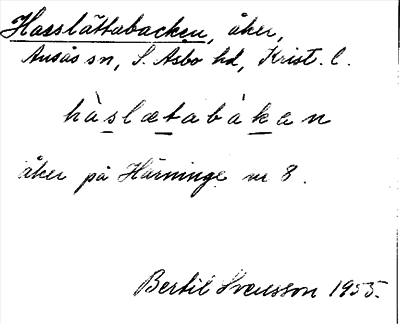 Hasslättabacken, åker,
Ausås sn, S. Åsbo hd, Krist. l.
hàslætabàkan
åker på Härninge nr 8.
Bertil Svensson 1955.